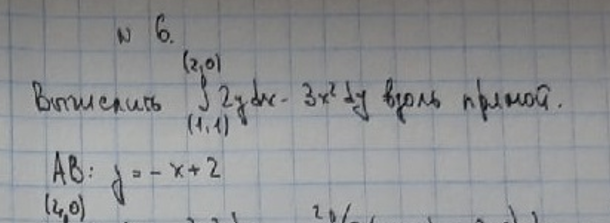 № 6.
(2,0)
Вычислить ∫ 2ydx - 3x² dy вдоль прямой.
(1,1)
AB: y = - x + 2
(2,0)